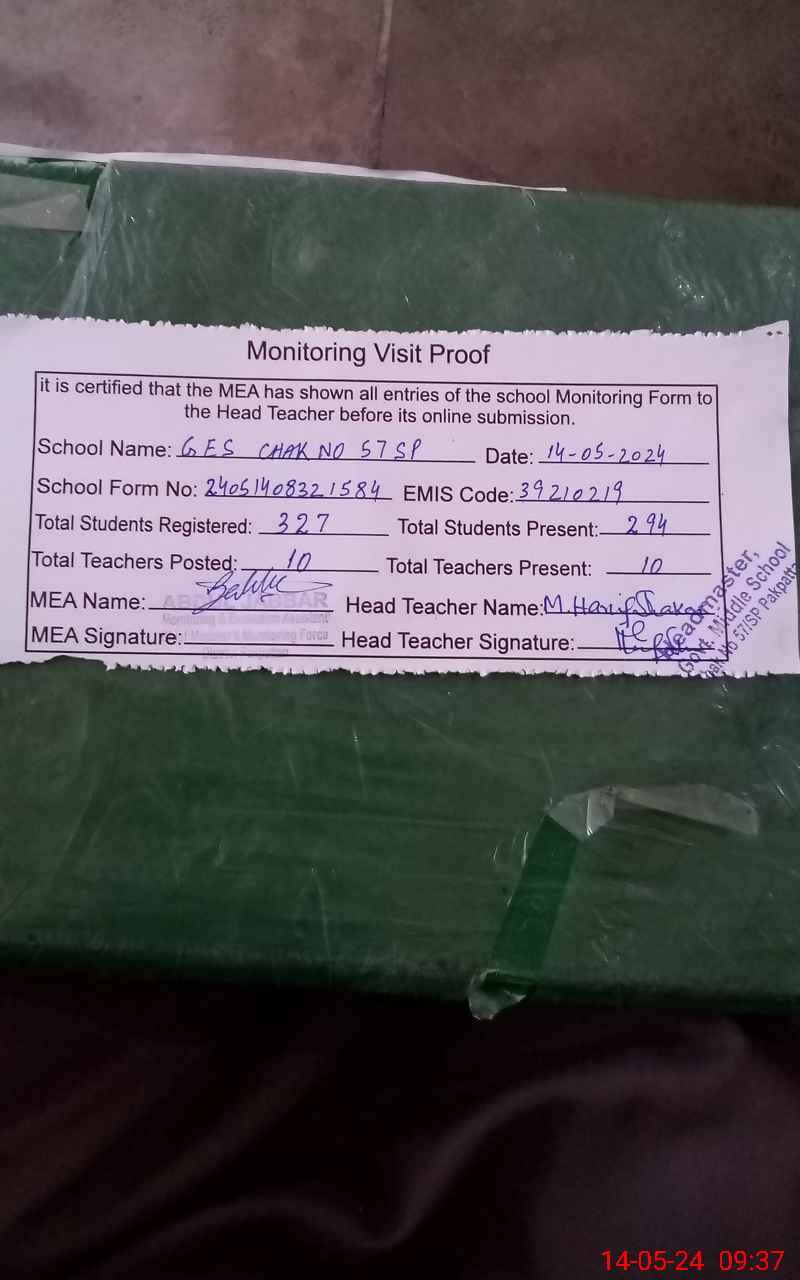 Monitoring Visit Proof
it is certified that the MEA has shown all entries of the school Monitoring Form to
the Head Teacher before its online submission.
School Name: GES CHAK NO 57 SP Date: 14-05-2024
School Form No: 24051408321584 EMIS Code: 39210219
Total Students Registered: 327 Total Students Present: 294
Total Teachers Posted: 10 Total Teachers Present: 10
MEA Name: ABDUL JABBAR Head Teacher Name: M. Hanif Shakar
Monitoring & Evaluation Assistant
MEA Signature: Head Teacher Signature:
Headmaster,
Govt. Middle School
Chak No 57/SP Pakpattan
14-05-24 09:37